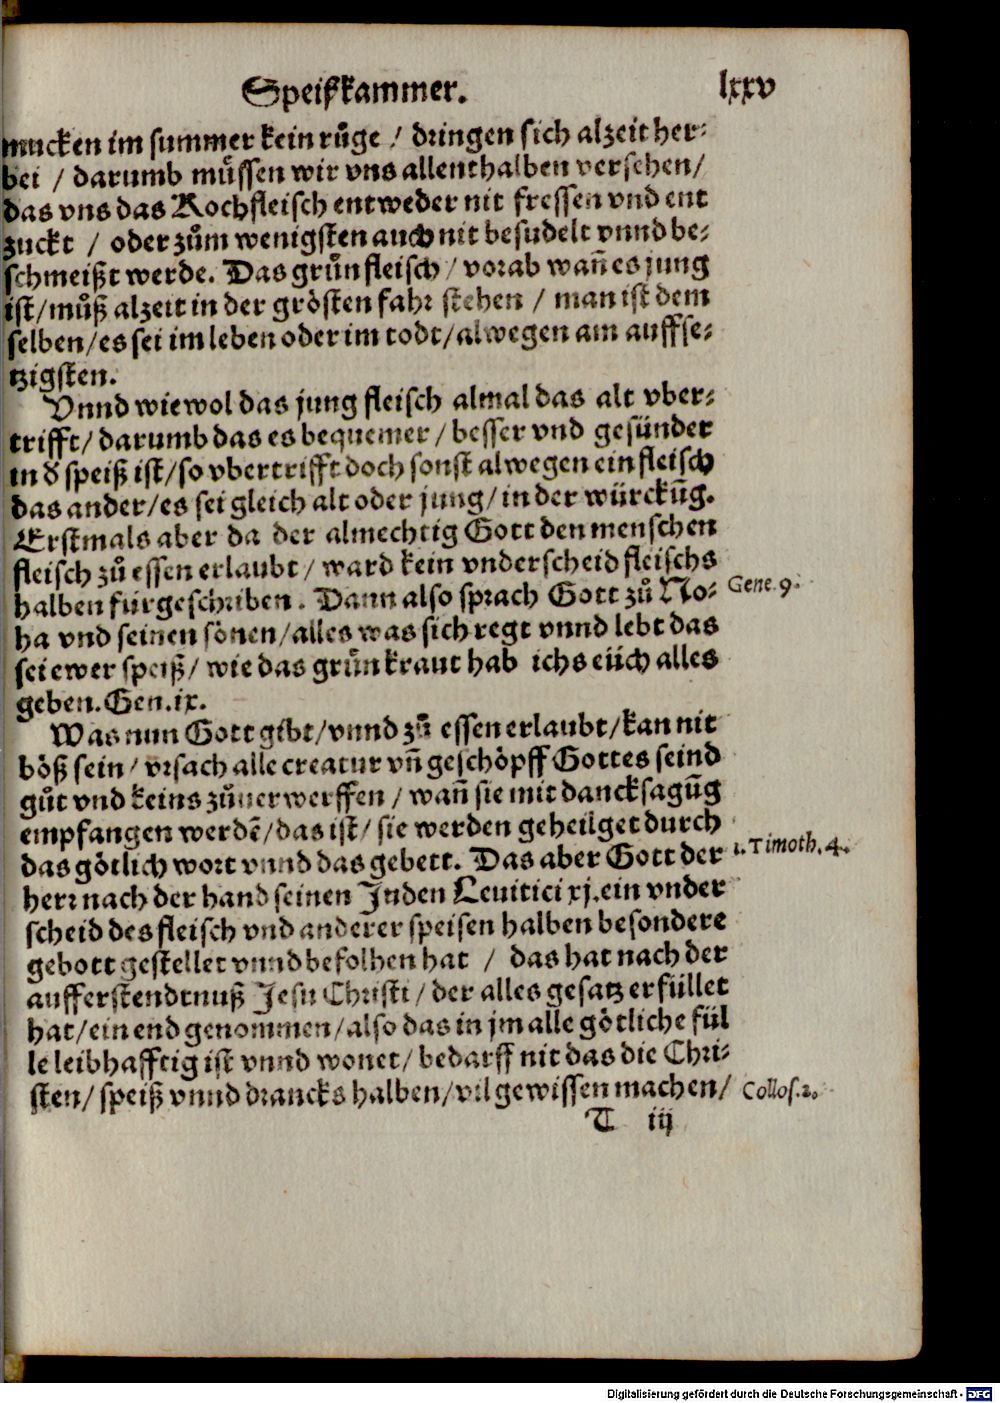 Speiſzkammer. lxxv
mucken im ſummer kein růge / dringen ſich alzeit her⸗
bei / darumb müſſen wir vns allenthalben verſehen/
das vns das Kochfleiſch entweder nit freſſen vnd ent
zuckt / oder zům wenigſten auch nit beſudelt vnnd be⸗
ſchmeißt werde. Das grůn fleiſch / vorab wañ es jung
iſt/ můß alzeit in der gröſten fahr ſtehen / man iſt dem
ſelben/ es ſei im leben oder im todt/ alwegen am auffſe⸗
tzigſten.
Vnnd wiewol das jung fleiſch almal das alt vber⸗
trifft/ darumb das es bequemer / beſſer vnd geſünder
in d' ſpeiß iſt/ ſo vbertrifft doch ſonſt alwegen ein fleiſch
das ander/ es ſei gleich alt oder jung/ in der würckũg.
Erſtmals aber da der almechtig Gott den menſchen
fleiſch zů eſſen erlaubt / ward kein vnderſcheid fleiſchs
halben fürgeſchriben. Dann alſo ſprach Gott zů No⸗
ha vnd ſeinen ſönen/ alles was ſich regt vnnd lebt das
ſei ewer ſpeiß/ wie das grůn kraut hab ichs eüch alles
geben. Gen. ix.
Gene. 9.
Was nun Gott gibt/ vnnd zů eſſen erlaubt/ kan nit
böß ſein / vrſach alle creatur vñ geſchöpff Gottes ſeind
gůt vnd keins zůuerwerffen / wañ ſie mit danckſagũg
empfangen werdẽ/ das iſt/ ſie werden geheilget durch
das götlich wort vnnd das gebett. Das aber Gott der
herr nach der hand ſeinen Juden Leuitici xj. ein vnder
ſcheid des fleiſch vnd anderer ſpeiſen halben beſondere
gebott geſtellet vnnd befolhen hat / das hat nach der
aufferſtendtnuß Jeſu Chriſti / der alles geſatz erfüllet
hat/ ein end genommen/ alſo das in jm alle götliche fül
le leibhafftig iſt vnnd wonet/ bedarff nit das die Chri⸗
ſten/ ſpeiß vnnd drancks halben/ vil gewiſſen machen/
1. Timoth. 4.
Colloſ. 2.
T iij
Digitalisierung gefördert durch die Deutsche Forschungsgemeinschaft - DFG